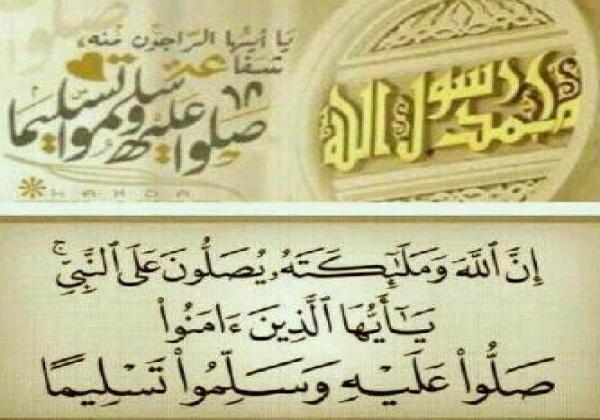 يا أيها الراجون منه
شفاعة
صلوا عليه وسلموا تسليما
محمد رسول الله
إِنَّ ٱللَّهَ وَمَلَٰٓئِكَتَهُۥ يُصَلُّونَ عَلَى ٱلنَّبِيِّ ۚ
يَٰٓأَيُّهَا ٱلَّذِينَ ءَامَنُوا۟
صَلُّوا۟ عَلَيْهِ وَسَلِّمُوا۟ تَسْلِيمًا